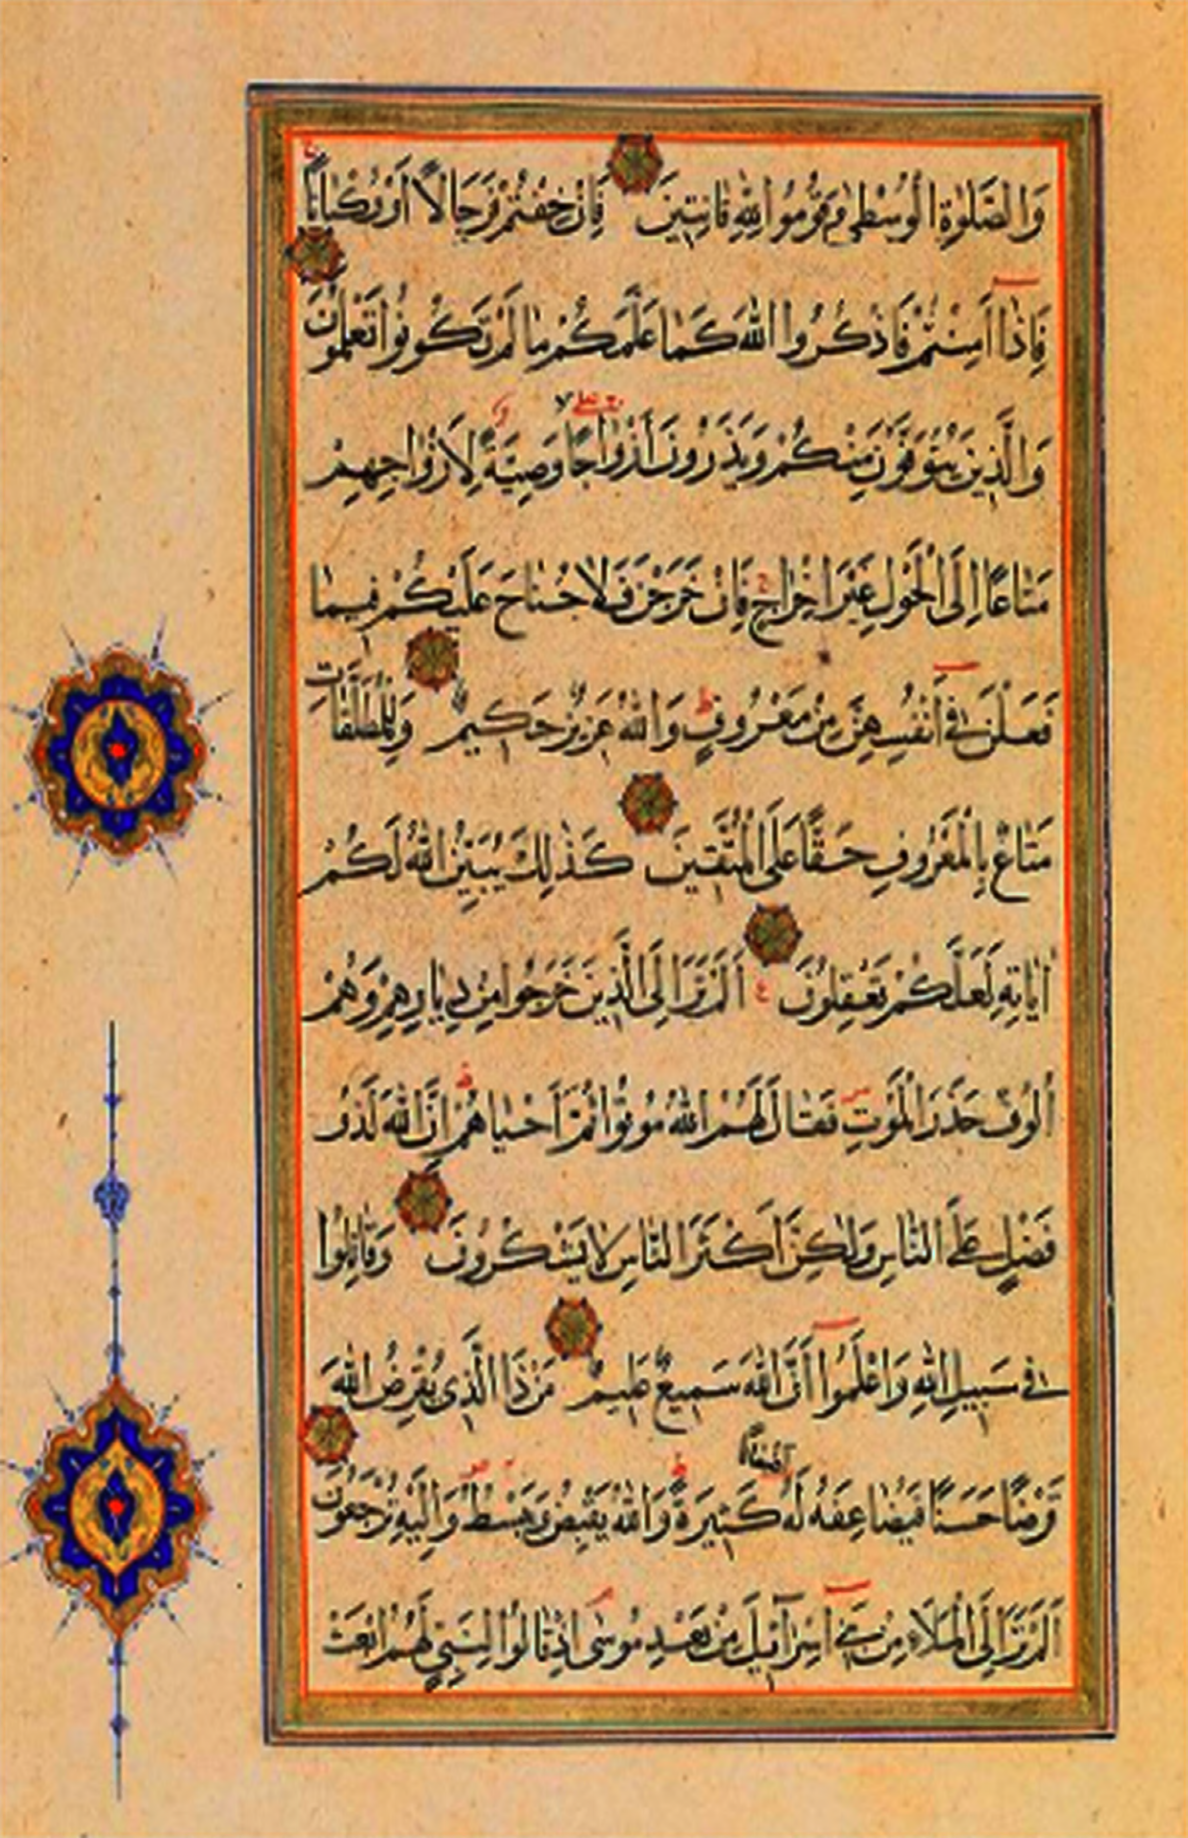 وَالصَّلٰوةِ الْوُسْطٰى وَقُومُوا لِلّٰهِ قَانِتِينَ فَاِنْ خِفْتُمْ فَرِجَالًا اَوْ رُكْبَانًا
فَاِذَا اَمِنْتُمْ فَاذْكُرُوا اللّٰهَ كَمَا عَلَّمَكُمْ مَا لَمْ تَكُونُوا تَعْلَمُونَ
وَالَّذِينَ يُتَوَفَّوْنَ مِنْكُمْ وَيَذَرُونَ اَزْوَاجًا وَصِيَّةً لِاَزْوَاجِهِمْ
مَتَاعًا اِلَى الْحَوْلِ غَيْرَ اِخْرَاجٍ فَاِنْ خَرَجْنَ فَلَا جُنَاحَ عَلَيْكُمْ فِيمَا
فَعَلْنَ فِي اَنْفُسِهِنَّ مِنْ مَعْرُوفٍ وَاللّٰهُ عَزِيزٌ حَكِيمٌ وَلِلْمُطَلَّقَاتِ
مَتَاعٌ بِالْمَعْرُوفِ حَقًّا عَلَى الْمُتَّقِينَ كَذٰلِكَ يُبَيِّنُ اللّٰهُ لَكُمْ
اٰيَاتِهِ لَعَلَّكُمْ تَعْقِلُونَ ع اَلَمْ تَرَ اِلَى الَّذِينَ خَرَجُوا مِنْ دِيَارِهِمْ وَهُمْ
اُلُوفٌ حَذَرَ الْمَوْتِ فَقَالَ لَهُمُ اللّٰهُ مُوتُوا ثُمَّ اَحْيَاهُمْ اِنَّ اللّٰهَ لَذُو
فَضْلٍ عَلَى النَّاسِ وَلٰكِنَّ اَكْثَرَ النَّاسِ لَا يَشْكُرُونَ وَقَاتِلُوا
فِي سَبِيلِ اللّٰهِ وَاعْلَمُوا اَنَّ اللّٰهَ سَمِيعٌ عَلِيمٌ مَنْ ذَا الَّذِي يُقْرِضُ اللّٰهَ
اَضْعَافًا
قَرْضًا حَسَنًا فَيُضَاعِفَهُ لَهُ كَثِيرَةً وَاللّٰهُ يَقْبِضُ وَيَبْسُطُ وَاِلَيْهِ تُرْجَعُونَ
اَلَمْ تَرَ اِلَى الْمَلَاءِ مِنْ بَنِي اِسْرَائِيلَ مِنْ بَعْدِ مُوسٰى اِذْ قَالُوا لِنَبِيٍّ لَهُمُ ابْعَثْ